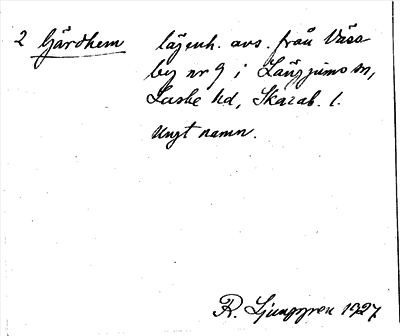 2 Gärdhem lägenh. avs. från Väsa
by nr 9 i Längjums sn,
Laske hd, Skarab. l.
Ungt namn.
R. Ljunggren 1927